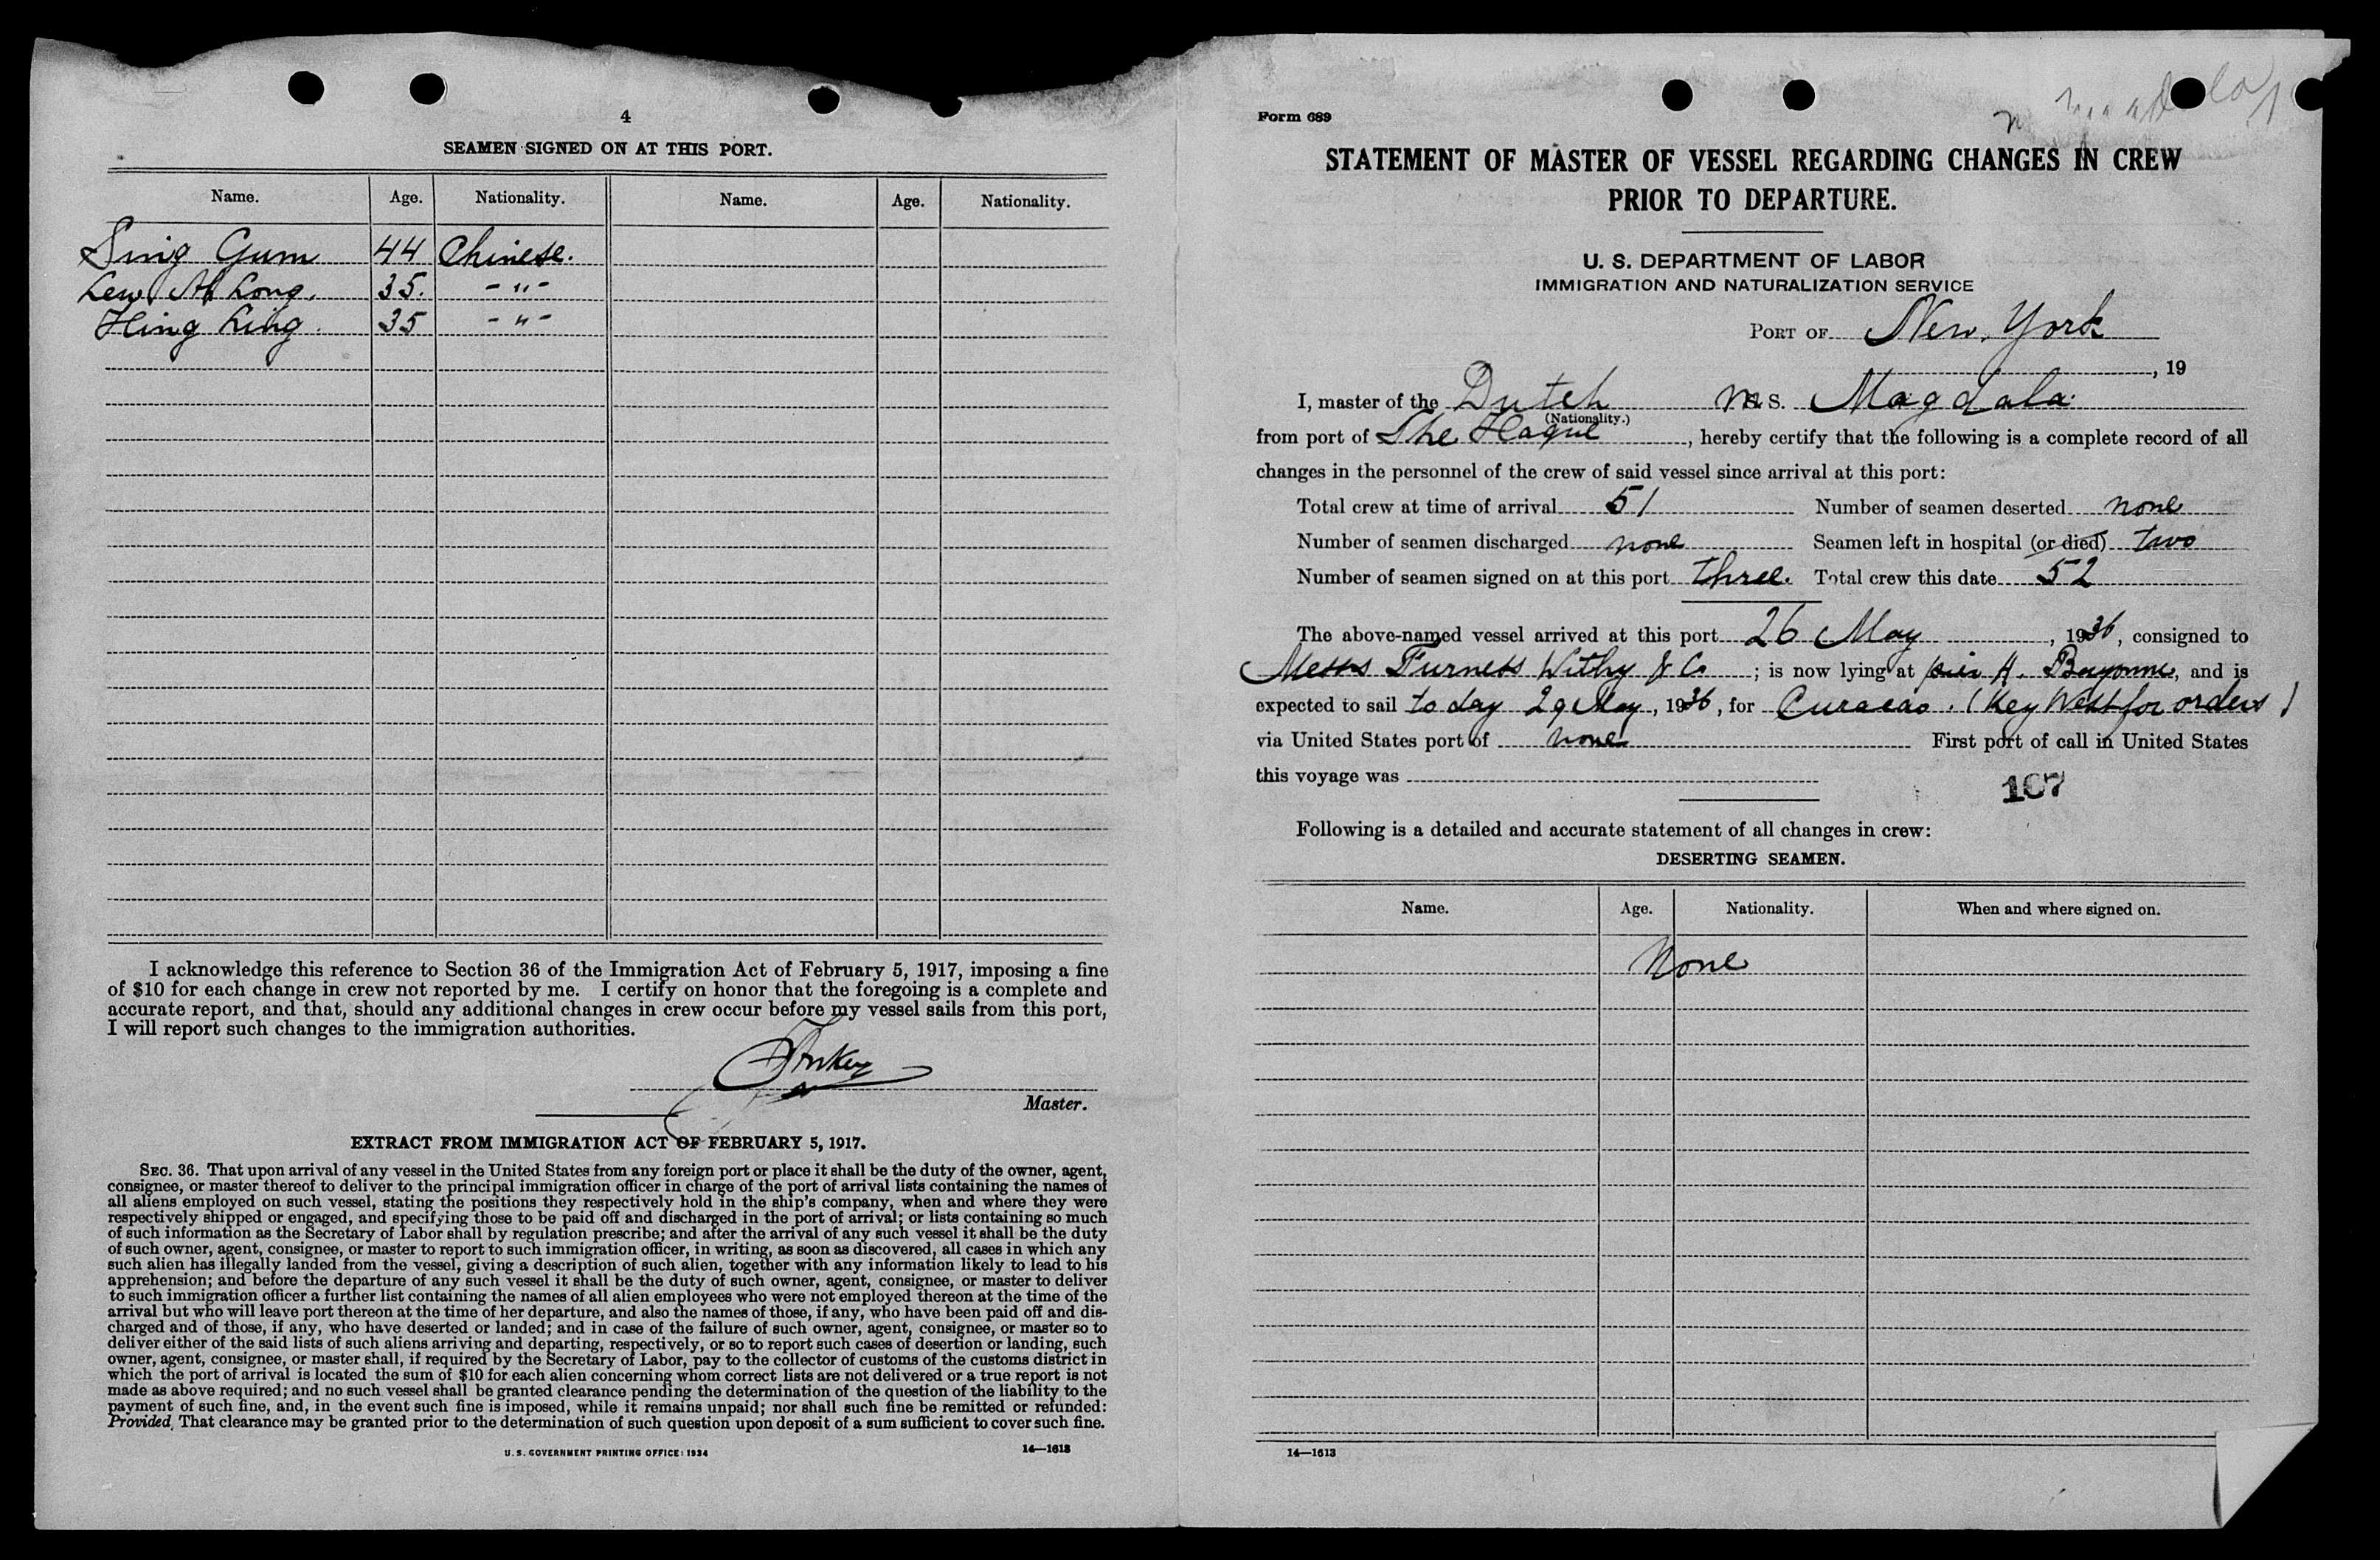 4
SEAMEN SIGNED ON AT THIS PORT.
Name. Age. Nationality. Name. Age. Nationality.
Sing Gum 44 Chinese.
Lew Ah Long. 35. - " -
Hing Ling. 35 - " -
I acknowledge this reference to Section 36 of the Immigration Act of February 5, 1917, imposing a fine
of $10 for each change in crew not reported by me. I certify on honor that the foregoing is a complete and
accurate report, and that, should any additional changes in crew occur before my vessel sails from this port,
I will report such changes to the immigration authorities.
Master.
EXTRACT FROM IMMIGRATION ACT OF FEBRUARY 5, 1917.
SEC. 36. That upon arrival of any vessel in the United States from any foreign port or place it shall be the duty of the owner, agent,
consignee, or master thereof to deliver to the principal immigration officer in charge of the port of arrival lists containing the names of
all aliens employed on such vessel, stating the positions they respectively hold in the ship's company, when and where they were
respectively shipped or engaged, and specifying those to be paid off and discharged in the port of arrival; or lists containing so much
of such information as the Secretary of Labor shall by regulation prescribe; and after the arrival of any such vessel it shall be the duty
of such owner, agent, consignee, or master to report to such immigration officer, in writing, as soon as discovered, all cases in which any
such alien has illegally landed from the vessel, giving a description of such alien, together with any information likely to lead to his
apprehension; and before the departure of any such vessel it shall be the duty of such owner, agent, consignee, or master to deliver
to such immigration officer a further list containing the names of all alien employees who were not employed thereon at the time of the
arrival but who will leave port thereon at the time of her departure, and also the names of those, if any, who have been paid off and dis-
charged and of those, if any, who have deserted or landed; and in case of the failure of such owner, agent, consignee, or master so to
deliver either of the said lists of such aliens arriving and departing, respectively, or so to report such cases of desertion or landing, such
owner, agent, consignee, or master shall, if required by the Secretary of Labor, pay to the collector of customs of the customs district in
which the port of arrival is located the sum of $10 for each alien concerning whom correct lists are not delivered or a true report is not
made as above required; and no such vessel shall be granted clearance pending the determination of the question of the liability to the
payment of such fine, and, in the event such fine is imposed, while it remains unpaid; nor shall such fine be remitted or refunded:
Provided, That clearance may be granted prior to the determination of such question upon deposit of a sum sufficient to cover such fine.
U. S. GOVERNMENT PRINTING OFFICE: 1934 14—1613
Form 689
STATEMENT OF MASTER OF VESSEL REGARDING CHANGES IN CREW
PRIOR TO DEPARTURE.
U. S. DEPARTMENT OF LABOR
IMMIGRATION AND NATURALIZATION SERVICE
PORT OF New York
, 19
I, master of the Dutch m. S. Magdala
(Nationality.)
from port of The Hague, hereby certify that the following is a complete record of all
changes in the personnel of the crew of said vessel since arrival at this port:
Total crew at time of arrival 51 Number of seamen deserted none
Number of seamen discharged none Seamen left in hospital (or died) two
Number of seamen signed on at this port three. Total crew this date 52
The above-named vessel arrived at this port 26 May, 1936, consigned to
Messrs Furness Withy & Co; is now lying at pier 4. Bayonne, and is
expected to sail to day 29 May, 1936, for Curacao. (Key West for orders)
via United States port of none First port of call in United States
this voyage was
167
Following is a detailed and accurate statement of all changes in crew:
DESERTING SEAMEN.
Name. Age. Nationality. When and where signed on.
None
14—1613